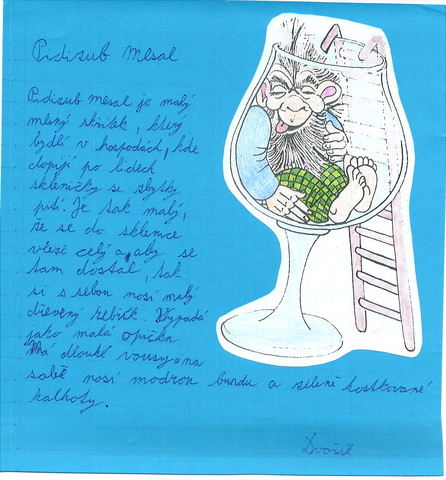 Pidizub Mlsal
Pidizub mlsal je malý
mlsný skřítek, který
bydlí v hospodách, kde
dopíjí po lidech
skleničky se zbytky
pití. Je tak malý,
že se do sklenice
vleze celý a aby se
tam dostal, tak
si s sebou nosí malý
dřevěný žebřík. Vypadá
jako malá opička
Má dlouhé vousy a na
sobě nosí modrou bundu a zeleně kostkované
kalhoty.
Dvořák